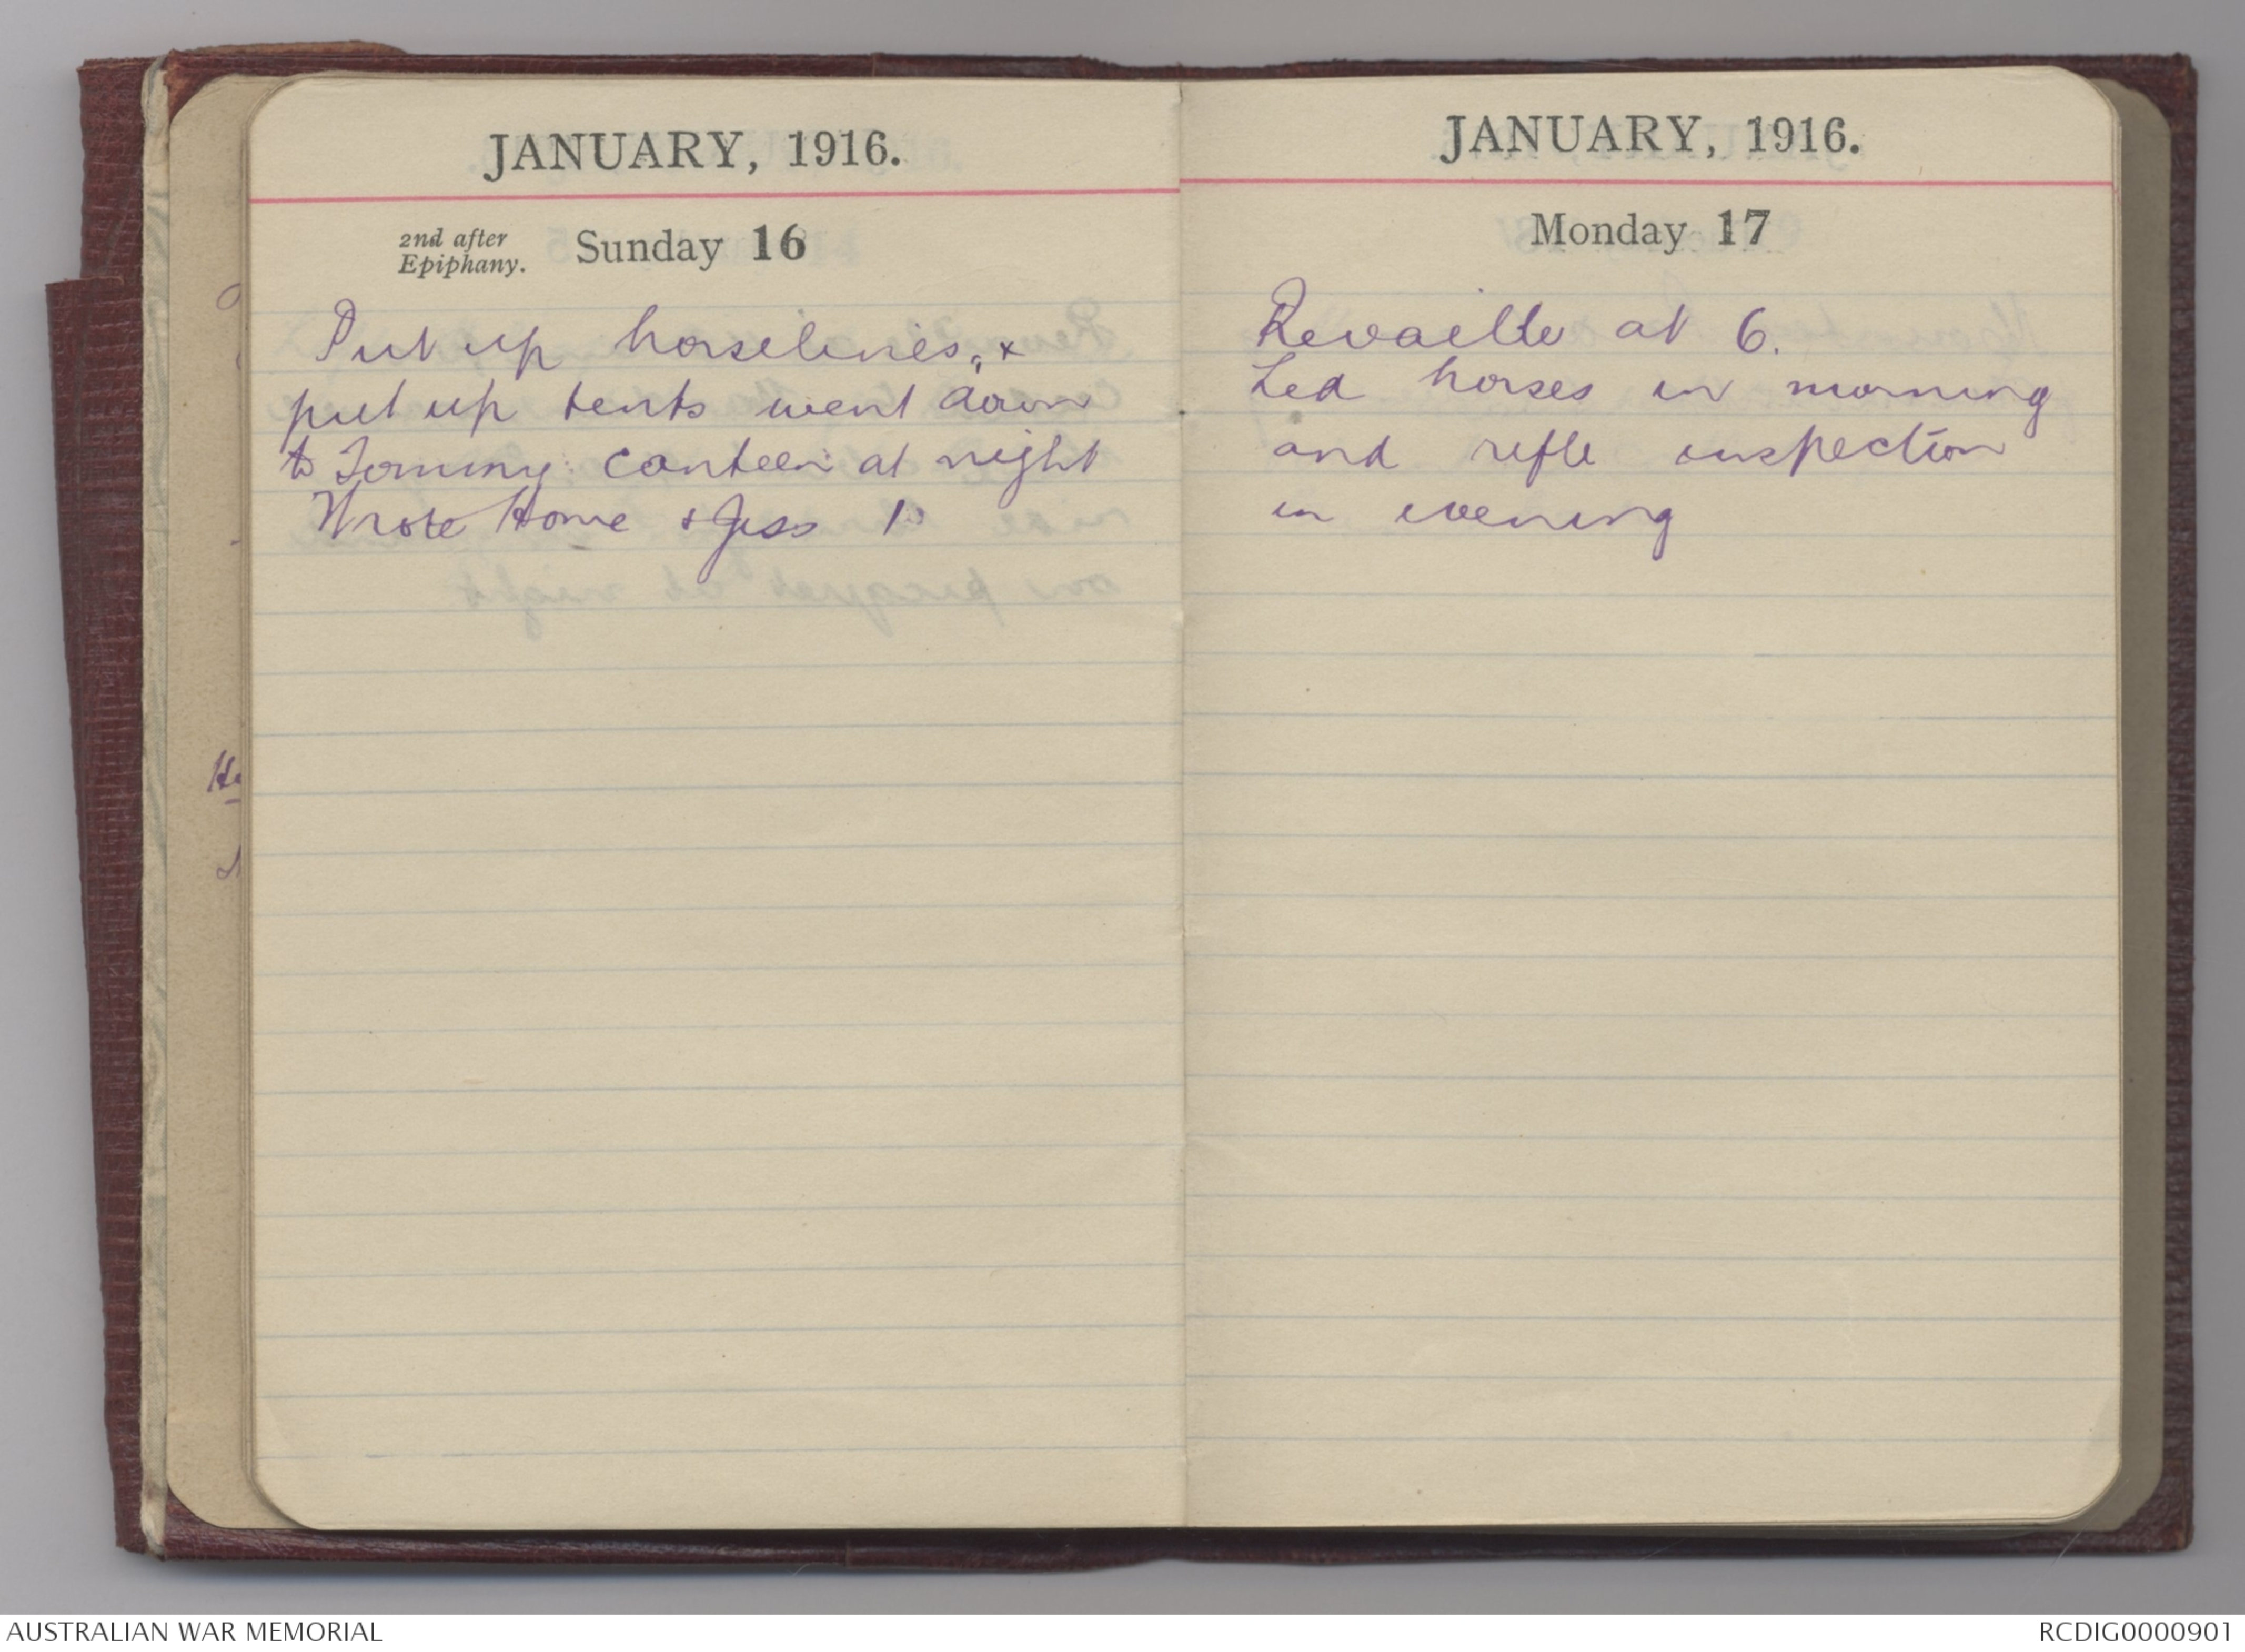 JANUARY, 1916.
2nd after
Epiphany.
Sunday 16
Put up horselines, &
put up tents went down
to Tommy canteen at night
Wrote Home & Jess 1
JANUARY, 1916.
Monday 17
Revaille at 6.
Led horses in morning
and rifle inspection
in evening
AUSTRALIAN WAR MEMORIAL
RCDIG0000901